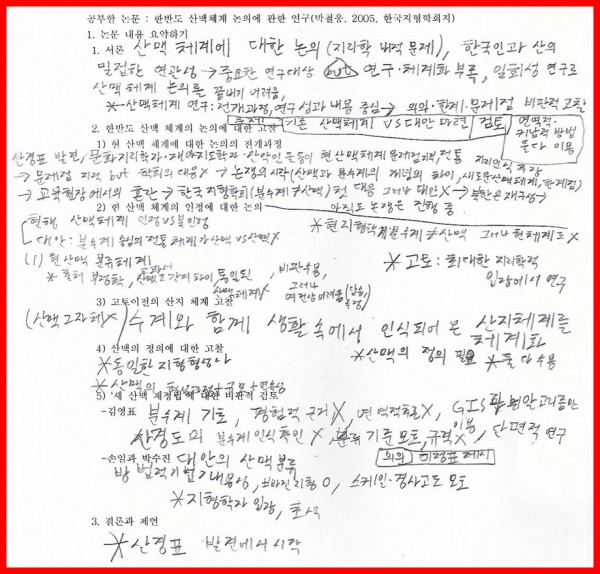 공부할 논문 : 한반도 산맥체계 논의에 관한 연구(박철웅, 2005, 한국지형학회지)
1. 논문 내용 요약하기
1. 서론 산맥 체계에 대한 논의(지리학 내적 문제), 한국인과 산의
밀접한 연관성→중요한 연구대상 but 연구·체계화 부족, 일회성 연구로
산맥체계 논의를 끝내기 어려움,
*산맥체계 연구:전개과정,연구성과 내용 중심→의의·한계·문제점 비판적 고찰
주제 기존 산맥체계 vs 대안 마련 검토
연역적·귀납적 방법 둘다 이용
2. 한반도 산맥 체계의 논의에 대한 고찰
1) 현 산맥 세계에의 논의의 전개과정
산경표 발견, 문화지리학자·재야지도학자·산악인 등이 현 산맥체계 문제점 지적, 전통
지리인식 주장
→문제점 지적 but 학회의 대응X→논쟁의 시작(산맥과 분수계의 개념의 차이,새로운산맥체계,한계점)
→교육현장에서의 혼란→한국지형학회(분수계≠산맥) 첫 대응 그러나 대안X→북한은 재구성→
아직도 논쟁은 진행 중.
2) 현 산맥체계의 인정에 대한 논의
현행 산맥체계 인정vs불인정
*현지형학계 분수계≠산맥 그러나 현체계도 X
대안: 분수계 중심의 전통체계 산맥vs산맥X
(1) 현산맥 분류체계
*고토:최대한 지리학적
입장에서 연구
3) 고토이전의 산지 체계 고찰
(산맥 그자체X) 수계와 함께 생활 속에서 인식되어 온 산지체계를
체계화
4) 산맥의 정의에 대한 고찰
*동일한 지형형성사
*산맥의 정의 필요 *둘 다 수용
*산맥의 형성과정+규모+연속성
5) 새 산맥 재정립에 대한 비판적 검토
-김영표 분수계 기초, 경험적 근거X, 연역적추론X, GIS
산경도의 분수계인식확인X, 분류 기준 모호, 규격X, 단편적 연구
-손일과 박수진 대안의 산맥분류
의의 이정표 제시
방법적기법 내용상, 스케일·경사고도 모호
*지형학자 입장, 초석
3. 결론과 제언
*산경표 발견에서 시작